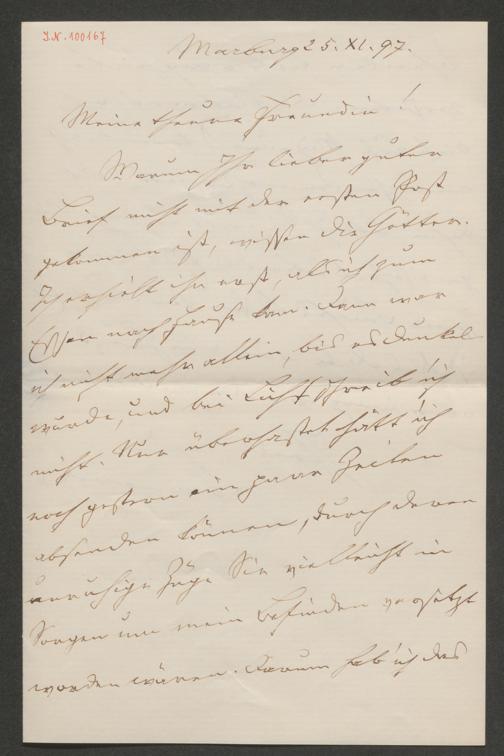 J.N. 100167
Marburg 25. XI. 97.
Meine theure Freundin!
Warum Ihr lieber guter
Brief nicht mit der ersten Post
gekommen ist, wissen die Götter.
Ich erhielt ihn erst, als ich zum
Essen nach Hause kam. Dann war
ich nicht mehr allein, bis es dunkel
wurde, und bei Licht schreib' ich
nicht. Nur überhastet hätt' ich
noch gestern ein paar Zeilen
absenden können, durch deren
unruhige Züge Sie vielleicht in
Sorgen um mein Befinden versetzt
worden wären. Darum hab' ich das